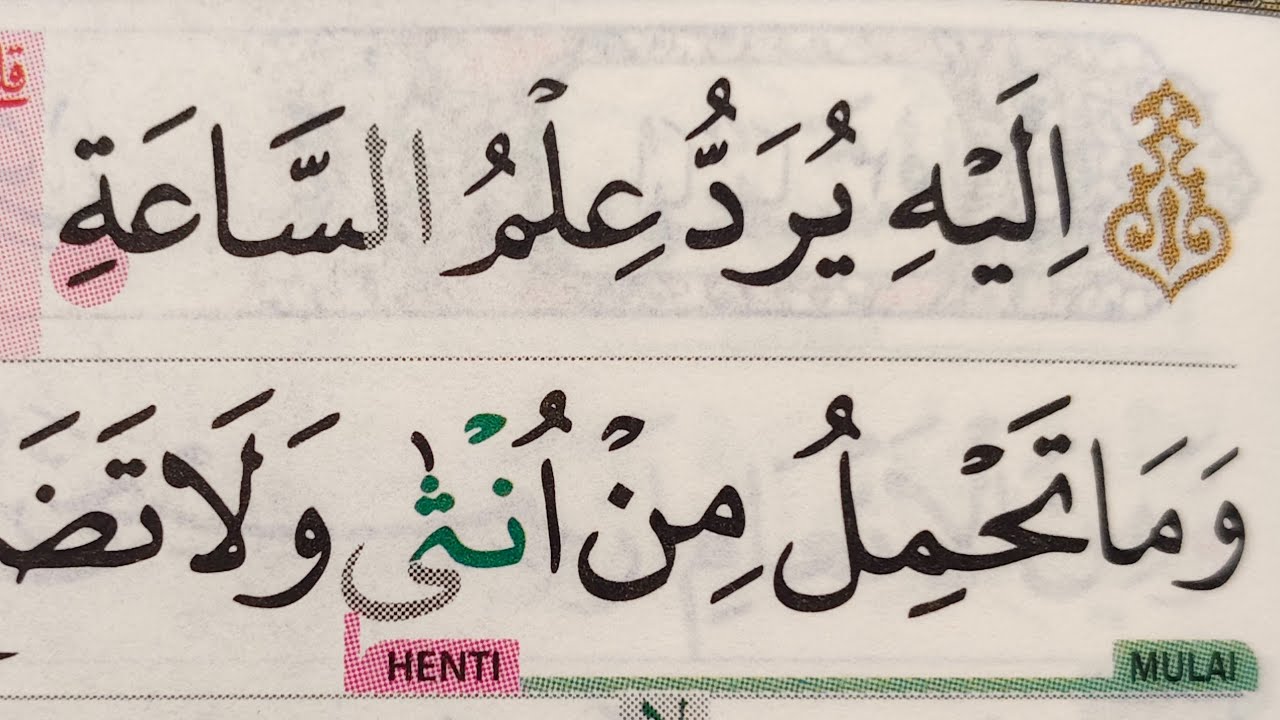 اِلَيْهِ يُرَدُّ عِلْمُ السَّاعَةِ
وَمَا تَحْمِلُ مِنْ اُنْثٰى وَلَا تَضَ
HENTI MULAI